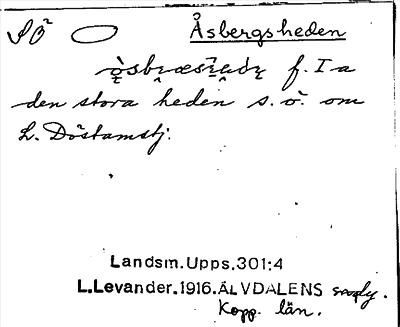 Åsbergsheden
f. I a
den stora heden s. ö. om
L. Döstamstj.
Landsm. Upps. 301:4
L. Levander. 1916. ÄLVDALENS
Kopp. län.